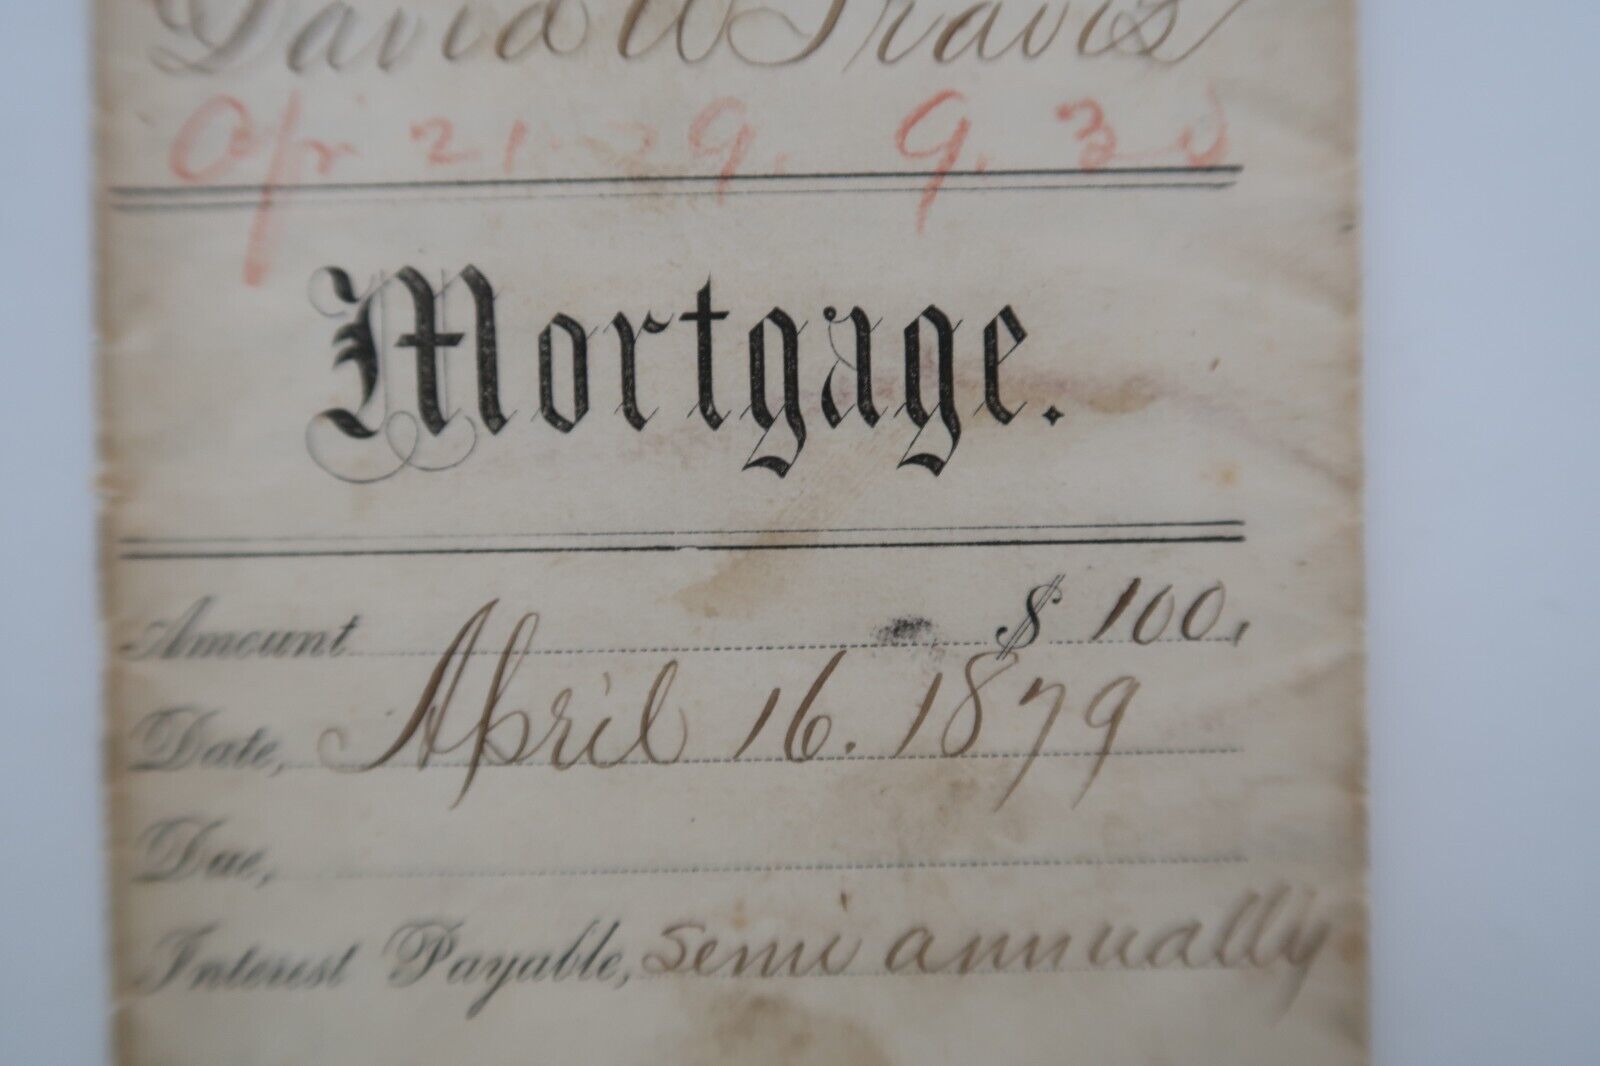 David W Travis
Apr 21 79. 9.30
Mortgage.
Amount $ 100,
Date, April 16. 1879
Due,
Interest Payable, semi annually